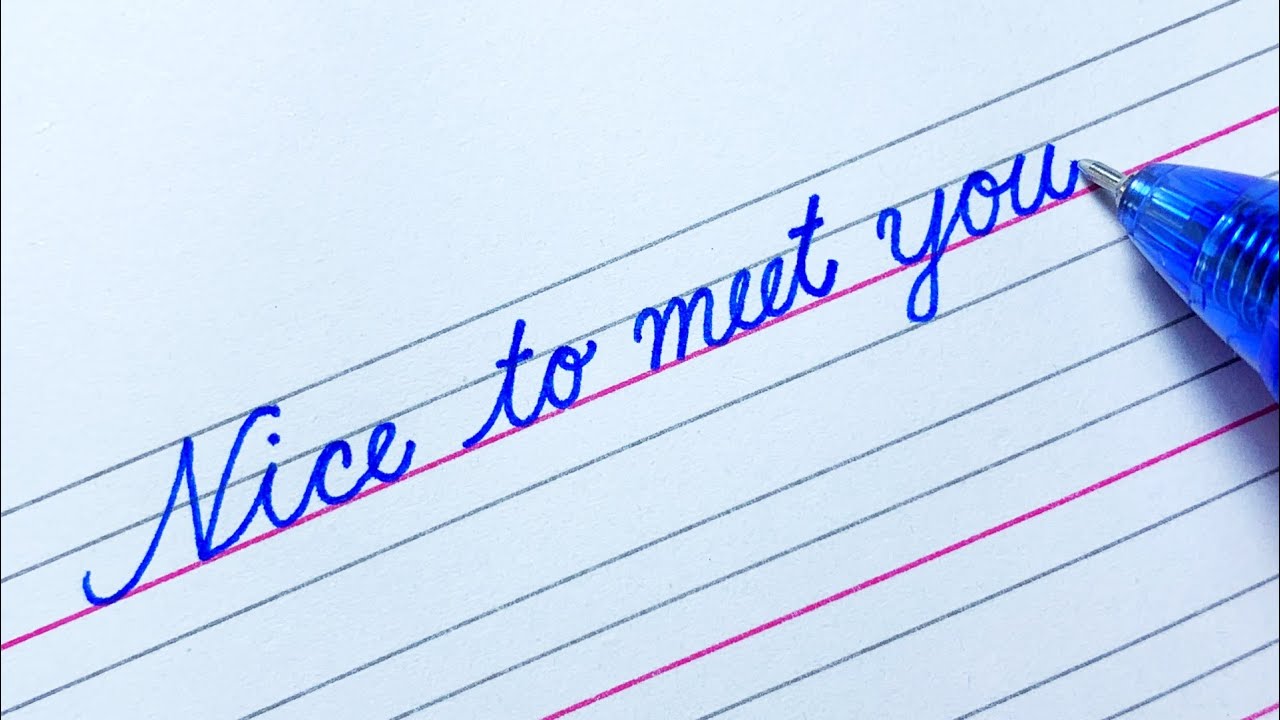 Nice to meet you